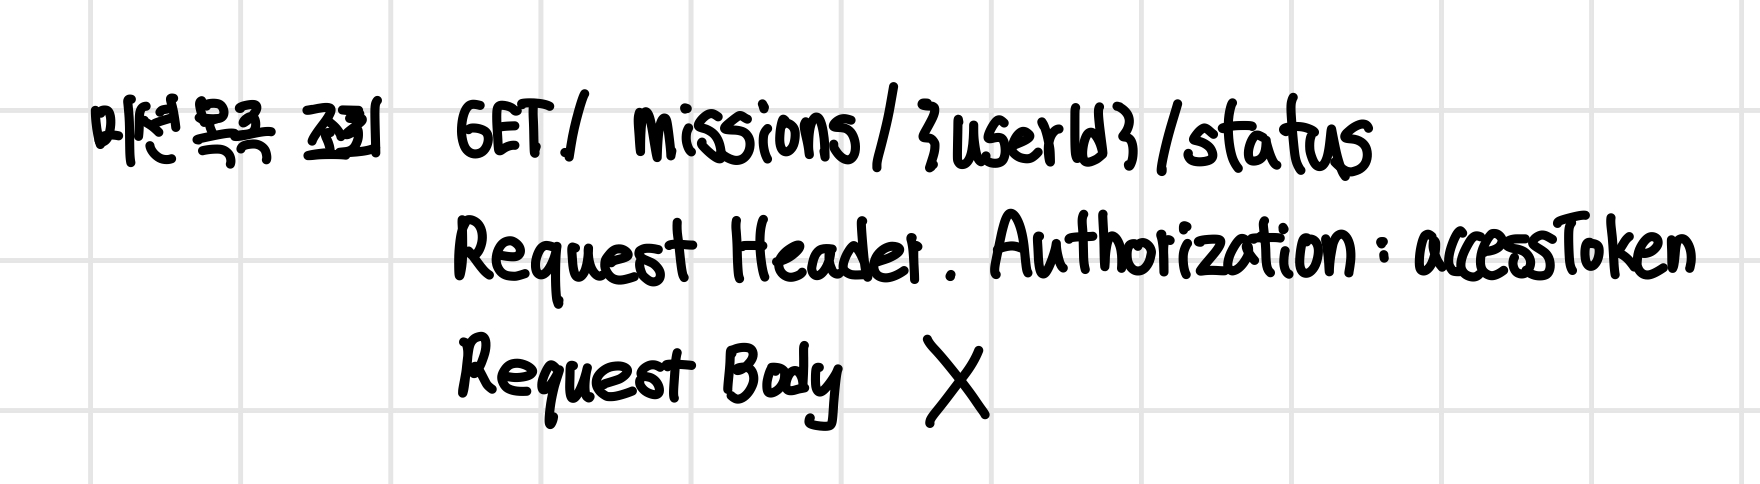 미션 목록 조회 GET / missions / {userId} / status
Request Header. Authorization : accessToken
Request Body X